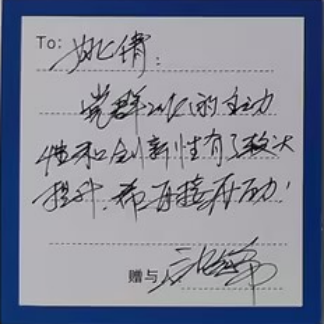 To: 姚倩:
党群工作的主动
性和创新性有了较大
提升,希再接再厉!
赠与人